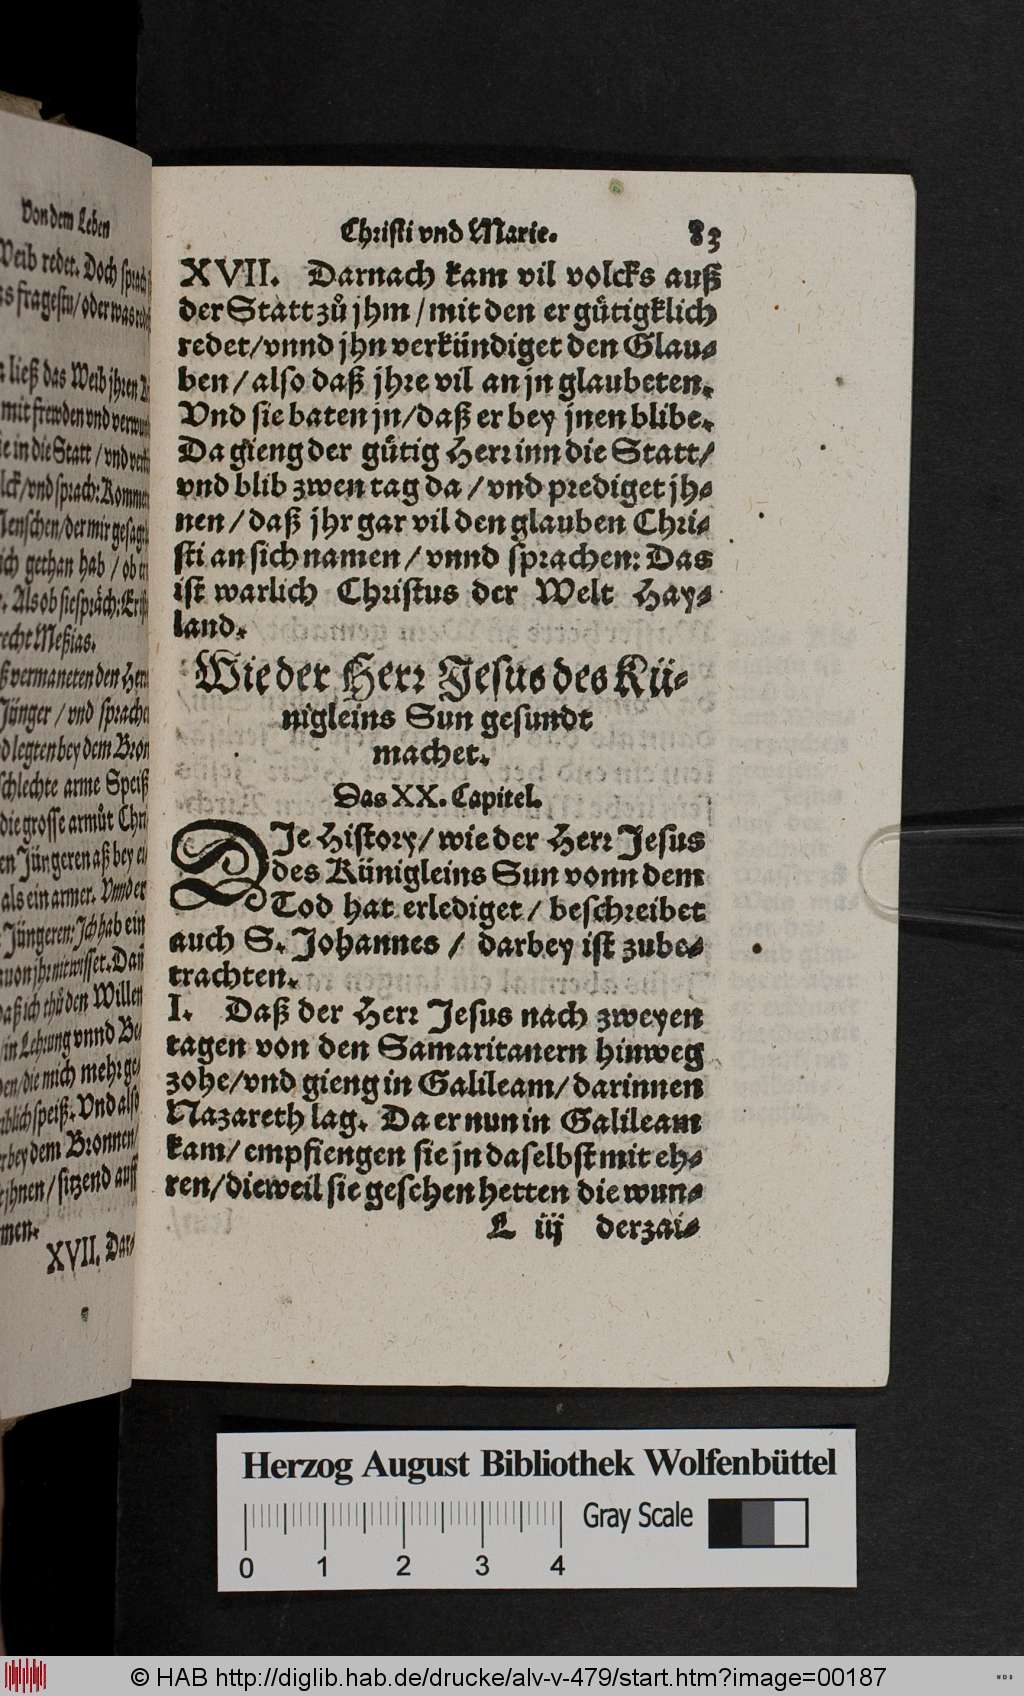 Von dem Leben
Weib redet. Doch sprach
fragestu/ oder was
ließ das Weib jhren
mit frewden vnd
in die Statt / vnd
vnd sprach: Kommen
Menschen/ der mir gesagt
ich gethan hab / ob
Als ob sie spräch: Er
recht Meßias.
vermaneten den Herr
Jünger / vnd sprachen
legten bey dem Bron
schlechte arme Speiß
die grosse armůt Chri
Jüngeren aß bey
als ein armer. Vnnd er
Jüngeren: Jch hab ein
jhr nit wisset. Dañ
daß ich thů den Willen
in Lehrung vnnd Be
die mich mehr ge
speiß. Vnd also
bey dem Bronnen/
jhnen / sitzend auff
men.
XVII. Dar-
Christi vnd Marie. 83
XVII. Darnach kam vil volcks auß
der Statt zů jhm / mit den er gůtigklich
redet/vnnd jhn verkündiget den Glau-
ben / also daß jhre vil an jn glaubeten.
Vnd sie baten jn/daß er bey jnen blibe.
Da gieng der gůtig Herr inn die Statt/
vnd blib zwen tag da / vnd prediget jh-
nen / daß jhr gar vil den glauben Chri-
sti an sich namen / vnnd sprachen: Das
ist warlich Christus der Welt Hay-
land.
Wie der Herr Jesus des Kü-
nigleins Sun gesundt
machet.
Das XX. Capitel.
DJe History/ wie der Herr Jesus
des Künigleins Sun vonn dem
Tod hat erlediget / beschreibet
auch S. Johannes / darbey ist zube-
trachten.
I. Daß der Herr Jesus nach zweyen
tagen von den Samaritanern hinweg
zohe/vnd gieng in Galileam/ darinnen
Nazareth lag. Da er nun in Galileam
kam/ empfiengen sie jn daselbst mit eh-
ren/dieweil sie gesehen hetten die wun-
L iij derzai-
Herzog August Bibliothek Wolfenbüttel
Gray Scale
0 1 2 3 4
© HAB http://diglib.hab.de/drucke/alv-v-479/start.htm?image=00187